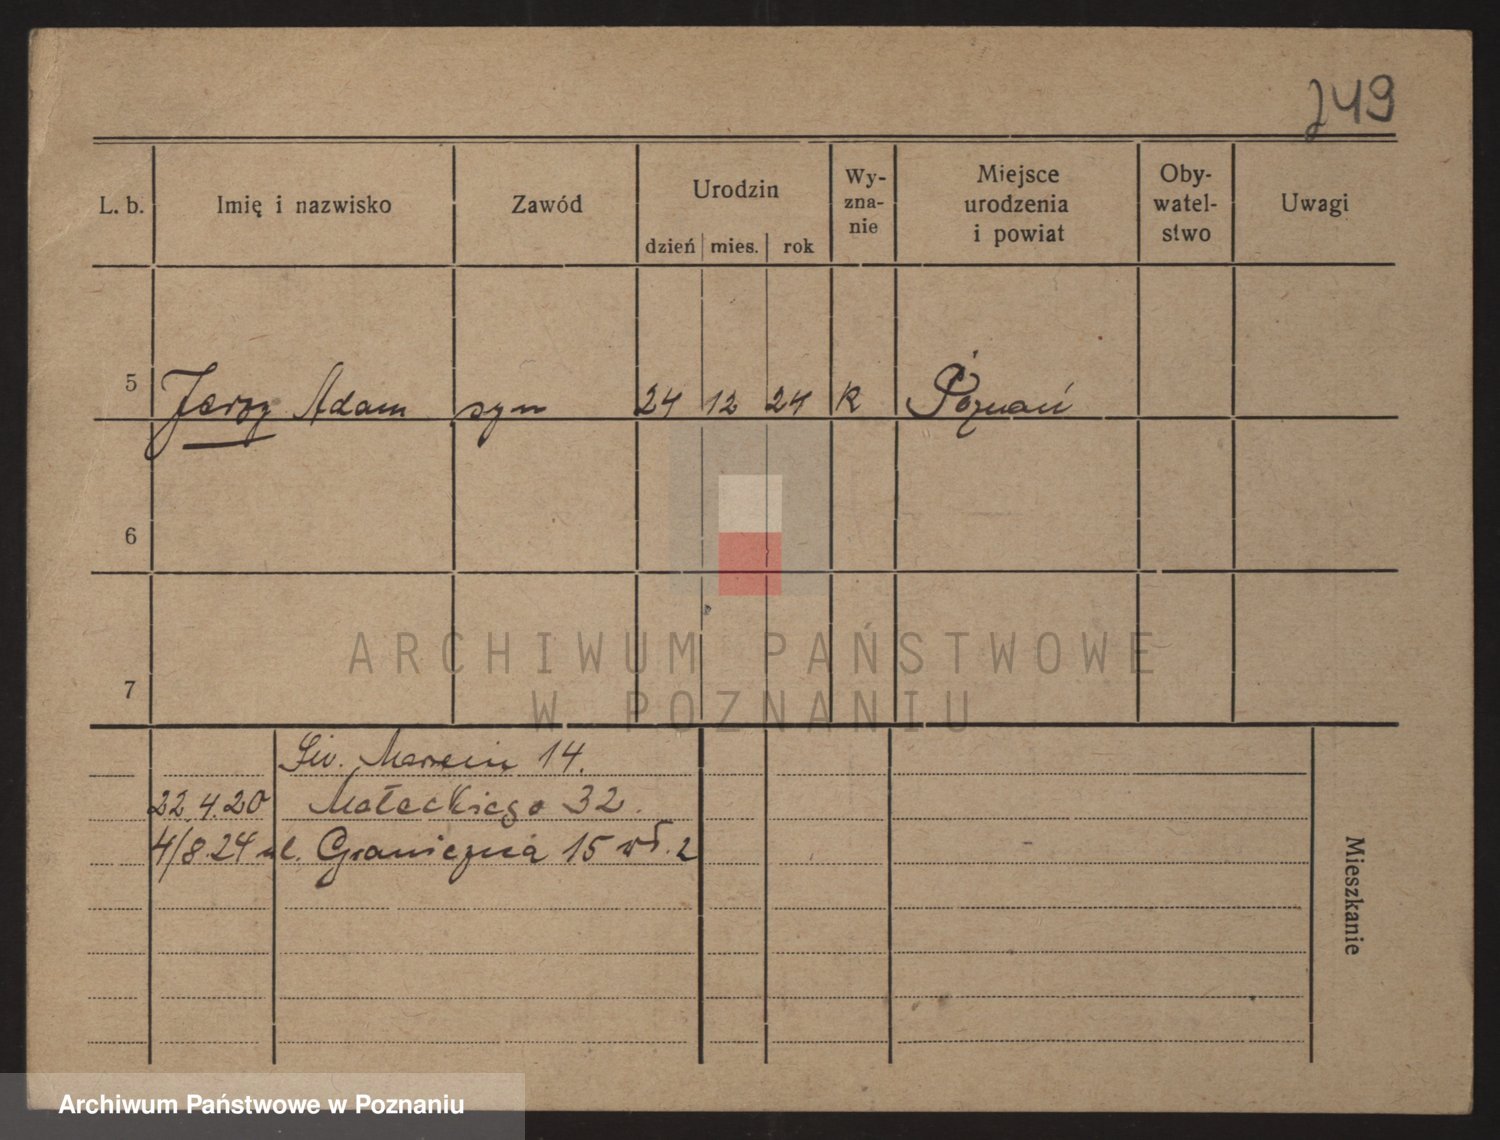 249
L. b. Imię i nazwisko Zawód Urodzin dzień mies. rok Wy-zna-nie Miejsce urodzenia i powiat Oby-watel-stwo Uwagi
5 Jerzy Adam syn 24 12 24 k Poznań
6
7
ARCHIWUM PAŃSTWOWE
W POZNANIU
Św. Marcin 14.
22.4.20 Małeckiego 32.
4/8.24 ul. Graniczna 15 2
Mieszkanie
Archiwum Państwowe w Poznaniu